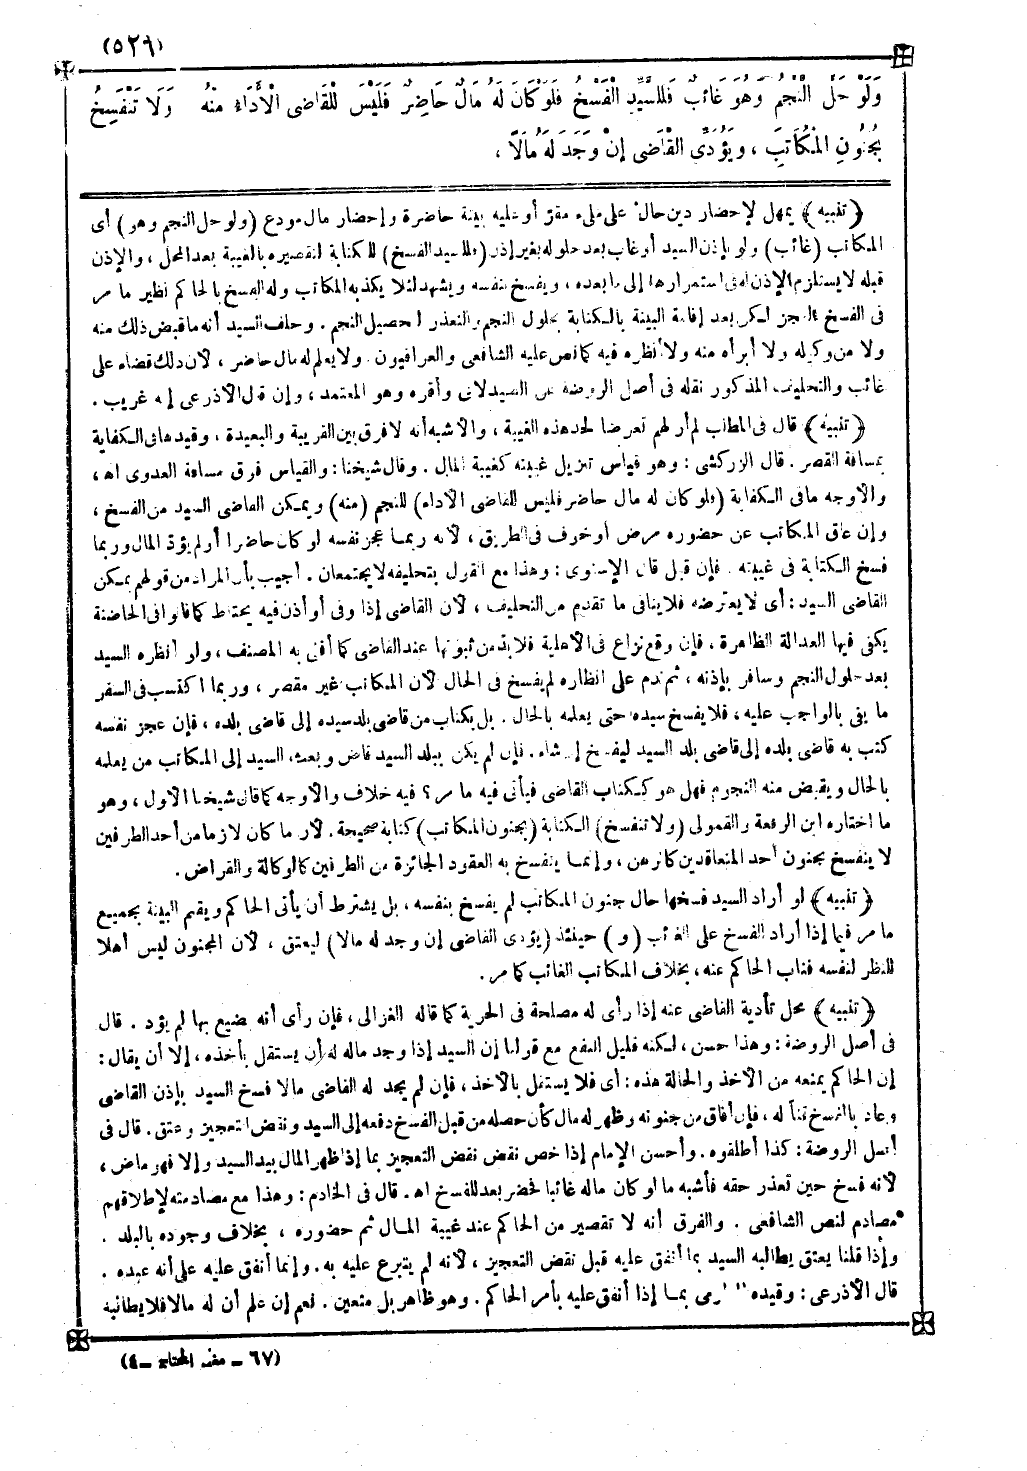 (٥٢٩)
وَلَوْ حَلَّ النَّجْمُ وَهُوَ غَائِبٌ فَلِلسَّيِّدِ الْفَسْخُ فَلَوْ كَانَ لَهُ مَالٌ حَاضِرٌ فَلَيْسَ لِلْقَاضِى الْأَدَاءُ مِنْهُ وَلَا تَنْفَسِخُ
بِجُنُونِ الْمُكَاتَبِ ، وَيُؤَدِّى الْقَاضِى إِنْ وَجَدَ لَهُ مَالًا ،
﴿ تنبيه ﴾ يمهل لإحضار دين حال على ملىء مقر أو عليه بينة حاضرة وإحضار مال مودع (ولو حل النجم وهو) أى
المكاتب (غائب) ولو بإذن السيد أو غاب بعد حلوله بغير إذن (فللسيد الفسخ) للكتابة لتقصيره بالغيبة بعد المحل ، والإذن
قبله لا يستلزم الإذن له فى استمرارها إلى ما بعده ، ويفسخ بنفسه ويشهد لئلا يكذبه المكاتب وله الفسخ بالحاكم نظير ما مر
فى الفسخ بالعجز لكن بعد إقامة البينة بالكتابة بحلول النجم والتعذر لتحصيل النجم . وحلف السيد أنه ما قبض ذلك منه
ولا من وكيله ولا أبرأه منه ولا أنظره فيه كما نص عليه الشافعى والعراقيون ولا يعلم له مال حاضر ، لأن ذلك قضاء على
غائب والتحليف المذكور نقله فى أصل الروضة عن الصيدلانى وأقره وهو المعتمد ، وإن قال الأذرعى إنه غريب .
﴿ تنبيه ﴾ قال فى المطلب لم أر لهم تعرضا لحد هذه الغيبة ، والأشبه أنه لا فرق بين القريبة والبعيدة ، وقيدها فى الكفاية
بمسافة القصر . قال الزركشى : وهو قياس تنزيل غيبته كغيبة المال . وقال شيخنا : والقياس فوق مسافة العدوى اه ،
والأوجه ما فى الكفاية (فلو كان له مال حاضر فليس للقاضى الأداء) للنجم (منه) ويمكن القاضى السيد من الفسخ ،
وإن عاق المكاتب عن حضوره مرض أو خوف فى الطريق ، لأنه ربما عجز نفسه لو كان حاضرا أو لم يؤد المال وربما
فسخ الكتابة فى غيبته . فإن قيل قال الإسنوى : وهذا مع القول بتحليفه لا يجتمعان . أجيب بأن المراد من قولهم يمكن
القاضى السيد : أى لا يعترضه فلا ينافى ما تقدم من التحليف ، لأن القاضى إذا وفى أو أذن فيه يحتاط كما قالوا فى الحاضنة
يكفى فيها العدالة الظاهرة ، فإن وقع نزاع فى الأهلية فلا بد من ثبوتها عند القاضى كما أفتى به المصنف ، ولو أنظره السيد
بعد حلول النجم وسافر بإذنه ، ثم ندم على انظاره لم يفسخ فى الحال لأن المكاتب غير مقصر ، وربما اكتسب فى السفر
ما يفى بالواجب عليه ، فلا يفسخ سيده حتى يعلمه بالحال . بل بكتاب من قاضى بلد سيده إلى قاضى بلده ، فإن عجز نفسه
كتب به قاضى بلده إلى قاضى بلد السيد ليفسخ إن شاء . فإن لم يكن ببلد السيد قاض وبعث السيد إلى المكاتب من يعلمه
بالحال ويقبض منه النجوم فهل هو ككتاب القاضى فيأتى فيه ما مر ؟ فيه خلاف والأوجه كما قال شيخنا الأول ، وهو
ما اختاره ابن الرفعة والقمولى (ولا تنفسخ) الكتابة (بجنون المكاتب) كتابة صحيحة . لأن ما كان لازما من أحد الطرفين
لا ينفسخ بجنون أحد المتعاقدين كالرهن ، وإنما ينفسخ به العقود الجائزة من الطرفين كالوكالة والقراض .
﴿ تنبيه ﴾ لو أراد السيد فسخها حال جنون المكاتب لم يفسخ بنفسه ، بل يشترط أن يأتى الحاكم ويقيم البينة بجميع
ما مر فيما إذا أراد الفسخ على الغائب (و) حينئذ (يؤدى القاضى إن وجد له مالا) ليعتق ، لأن المجنون ليس أهلا
للنظر لنفسه فناب الحاكم عنه ، بخلاف المكاتب الغائب كما مر .
﴿ تنبيه ﴾ محل تأدية القاضى عنه إذا رأى له مصلحة فى الحرية كما قاله الغزالى ، فإن رأى أنه يضيع بها لم يؤد . قال
فى أصل الروضة : وهذا حسن ، لكنه قليل النفع مع قولنا إن السيد إذا وجد ماله له أن يستقل بأخذه ، إلا أن يقال :
إن الحاكم يمنعه من الأخذ والحالة هذه : أى فلا يستقل بالأخذ ، فإن لم يجد له القاضى مالا فسخ السيد بإذن القاضى
وعاد بالفسخ قنا له ، فإن أفاق من جنونه وظهر له مال كأن حصله من قبل الفسخ دفعه إلى السيد ونقض التعجيز وعتق . قال فى
أصل الروضة : كذا أطلقوه . وأحسن الإمام إذا خص نقض نقض التعجيز بما إذا ظهر المال بيد السيد وإلا فهو ماض ،
لأنه فسخ حين تعذر حقه فأشبه ما لو كان ماله غائبا فحضر بعد للفسخ اه . قال فى الخادم : وهذا مع مصادمته لإطلاقهم
مصادم لنص الشافعى . والفرق أنه لا تقصير من الحاكم عند غيبة المال ثم حضوره ، بخلاف وجوده بالبلد .
وإذا قلنا يعتق يطالبه السيد بما أنفق عليه قبل نقض التعجيز ، لأنه لم يتبرع عليه به . وإنما أنفق عليه على أنه عبده .
قال الأذرعى : وقيده بما إذا أنفق عليه بأمر الحاكم . وهو ظاهر بل متعين . نعم إن علم أن له مالا فلا يطالبه
(٦٧ – مغنى المحتاج – ٤)